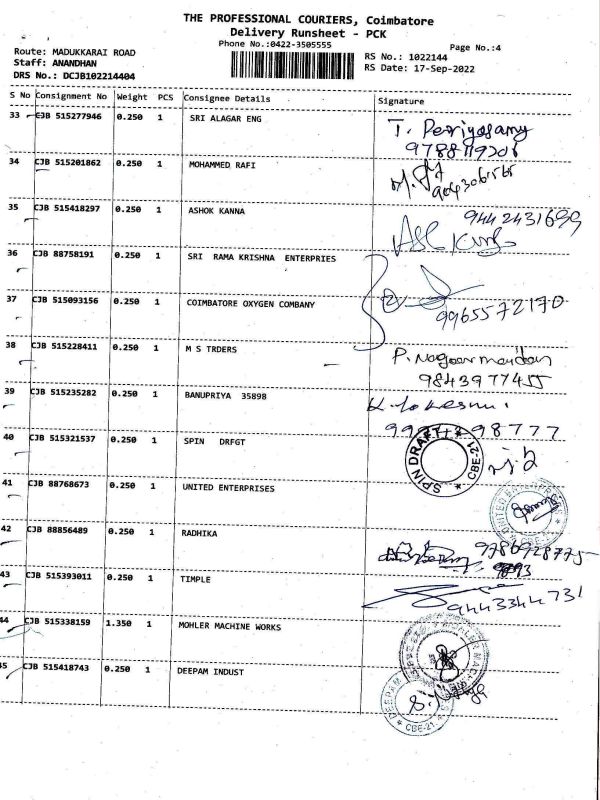 THE PROFESSIONAL COURIERS, Coimbatore
Delivery Runsheet - PCK
Phone No.:0422-3505555
Page No.:4
Route: MADUKKARAI ROAD
Staff: ANANDHAN
DRS No.: DCJB102214404
RS No.: 1022144
RS Date: 17-Sep-2022
S No Consignment No Weight PCS Consignee Details Signature
33 CJB 515277946 0.250 1 SRI ALAGAR ENG T. Periyasamy
34 CJB 515201862 0.250 1 MOHAMMED RAFI
35 CJB 515418297 0.250 1 ASHOK KANNA 9442431699
36 CJB 88758191 0.250 1 SRI RAMA KRISHNA ENTERPRIES
37 CJB 515093156 0.250 1 COIMBATORE OXYGEN COMBANY 2 9965572170
38 CJB 515228411 0.250 1 M S TRDERS
9843977455
39 CJB 515235282 0.250 1 BANUPRIYA 35898
40 CJB 515321537 0.250 1 SPIN DRFGT SPIN DRAFT * CBE-21 *
41 CJB 88768673 0.250 1 UNITED ENTERPRISES
42 CJB 88856489 0.250 1 RADHIKA 9786928775
43 CJB 515393011 0.250 1 TIMPLE 9443344731
44 CJB 515338159 1.350 1 MOHLER MACHINE WORKS
45 CJB 515418743 0.250 1 DEEPAM INDUST DEEPAM CBE-21